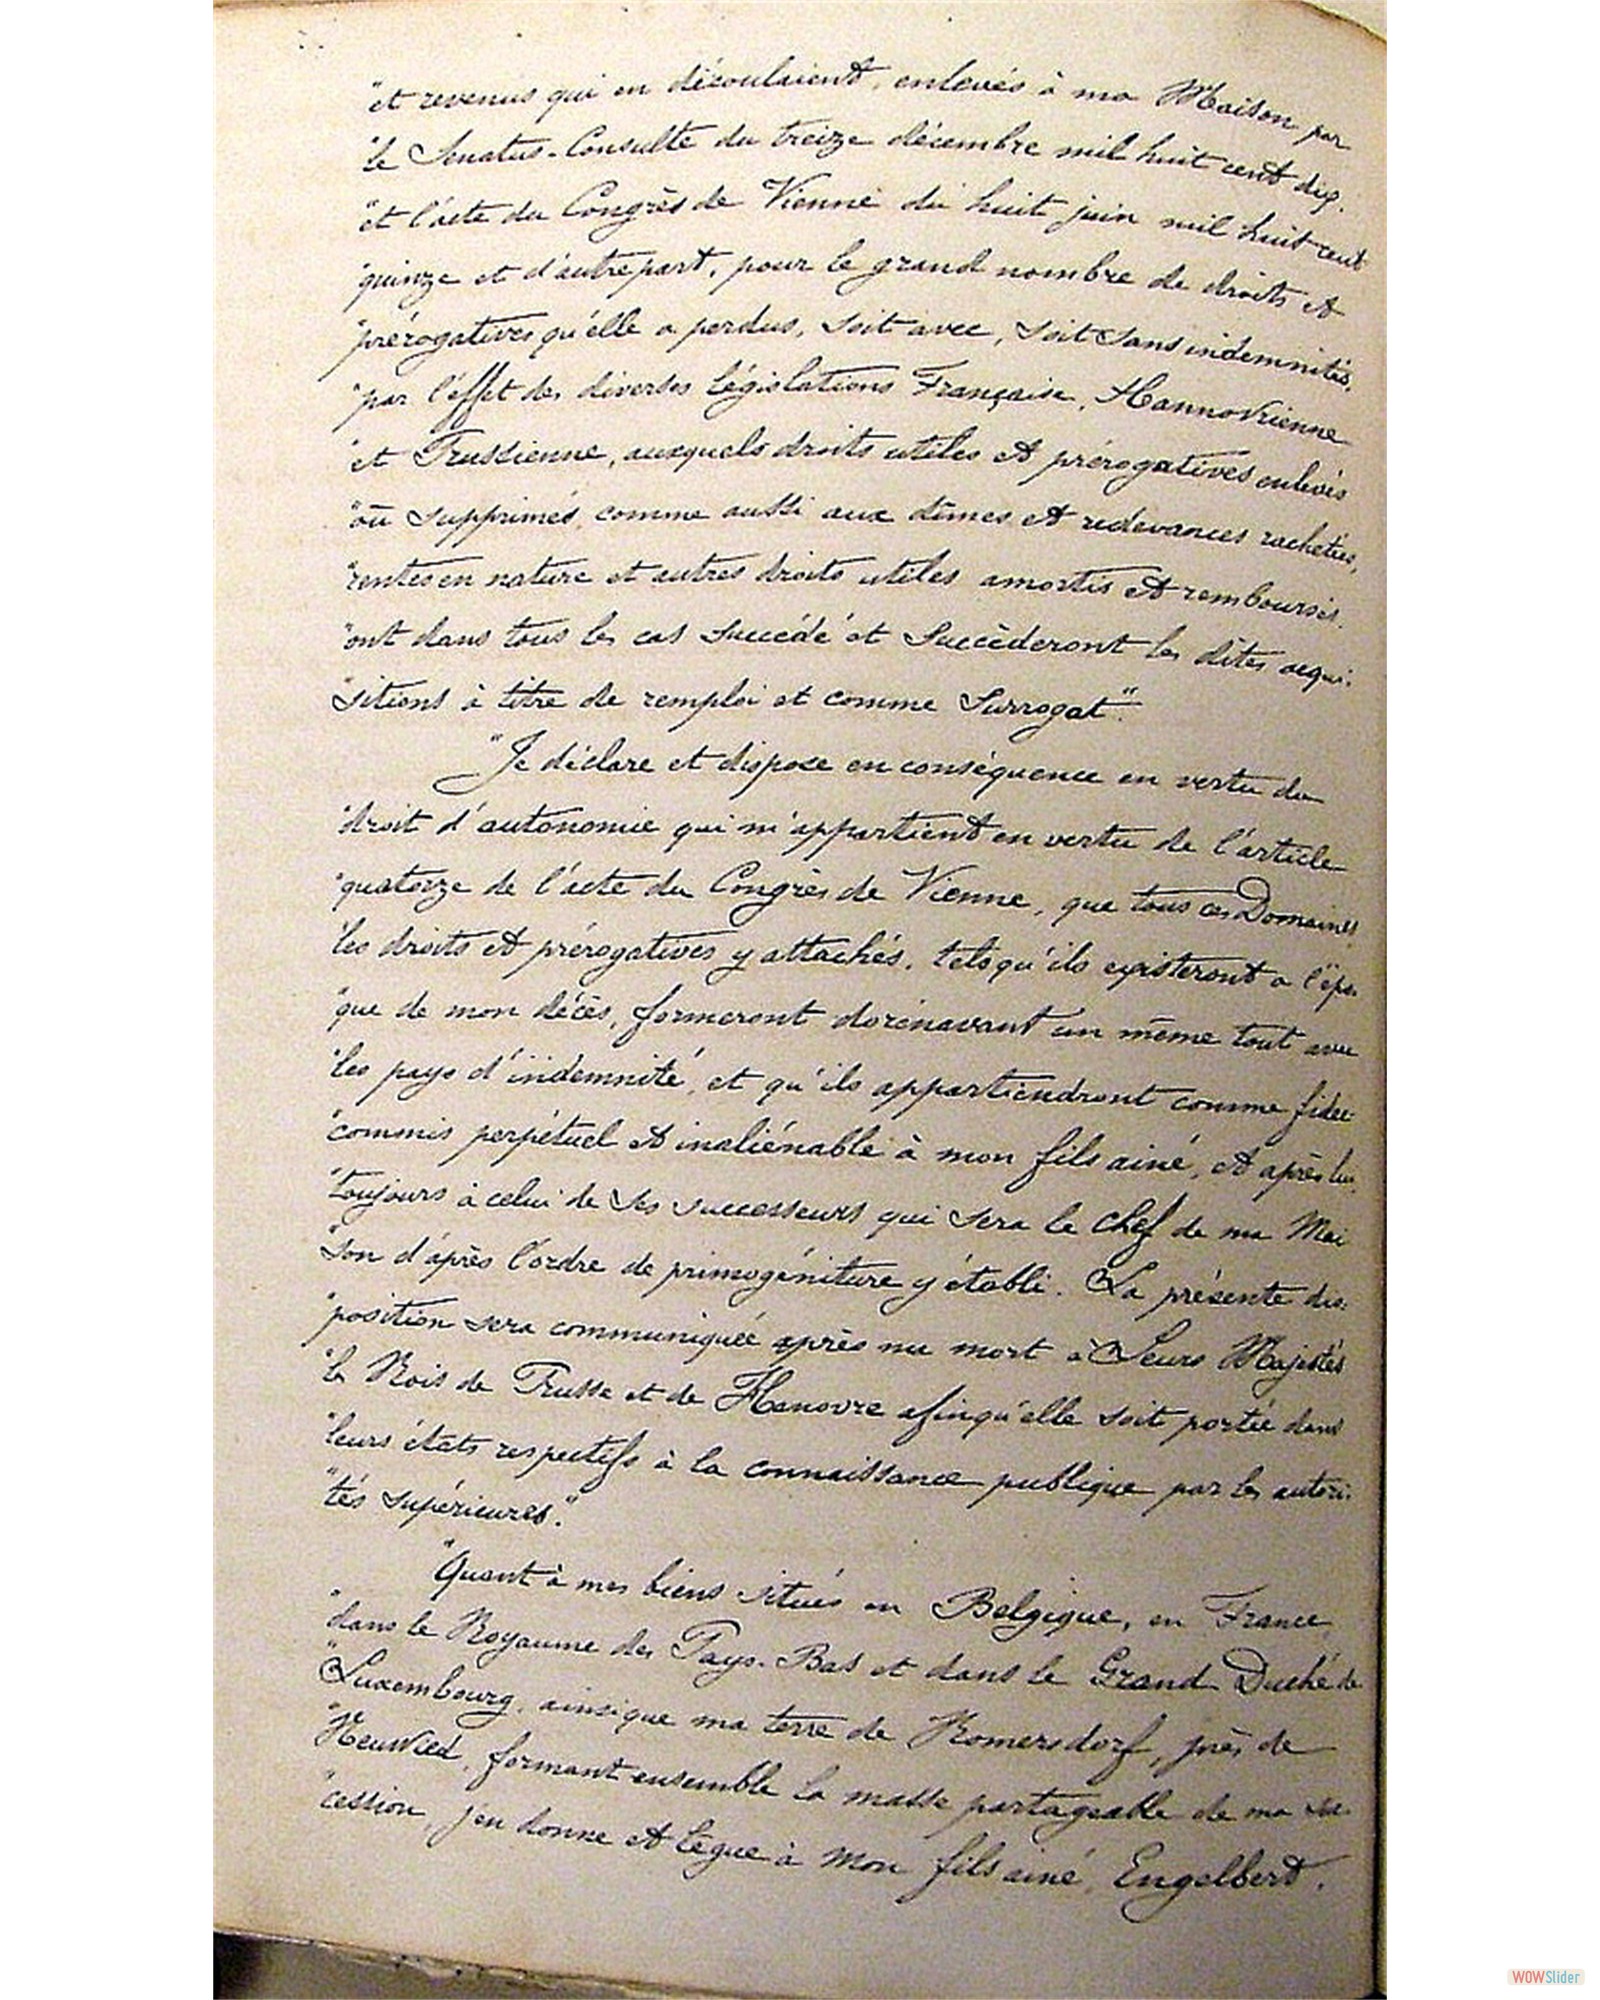 "et revenus qui en découlaient, enlevés à ma Maison par
"le Senatus-Consulte du treize décembre mil huit cent dix.
"et l'acte du Congrès de Vienne du huit juin mil huit cent
"quinze et d'autre part, pour le grand nombre de droits et
"prérogatives qu'elle a perdus, soit avec, soit sans indemnités,
"par l'effet des diverses législations Française, Hannovrienne
"et Prussienne, auxquels droits utiles et prérogatives enlevés
"ou supprimés, comme aussi aux dîmes et redevances rachetées,
"rentes en nature et autres droits utiles amortis et remboursés.
"ont dans tous les cas succédé et succèderont les dites acqui-
"sitions à titre de remploi et comme Surrogat".
"Je déclare et dispose en conséquence en vertu du
"droit d'autonomie qui m'appartient en vertu de l'article
"quatorze de l'acte du Congrès de Vienne, que tous ces Domaines
"les droits et prérogatives y attachés, tels qu'ils existeront a l'épo-
"que de mon décès, formeront dorénavant un même tout avec
"les pays d'indemnité, et qu'ils appartiendront comme fidei
"commis perpétuel et inaliénable à mon fils ainé, et après lui,
"toujours à celui de ses successeurs qui sera le chef de ma Mai
"son d'après l'ordre de primogéniture y établi. La présente dis-
"position sera communiquée après ma mort a Leurs Majestés
"les Rois de Prusse et de Hanovre afin qu'elle soit portée dans
"leurs états respectifs à la connaissance publique par les autori-
"tés supérieures."
"Quant à mes biens situés en Belgique, en France,
"dans le Royaume des Pays-Bas et dans le Grand Duché de
"Luxembourg, ainsi que ma terre de Romersdorf, près de
"Neuwied, formant ensemble la masse partageable de ma suc-
"cession, j'en donne et lègue à mon fils ainé, Engelbert.
WOWSlider